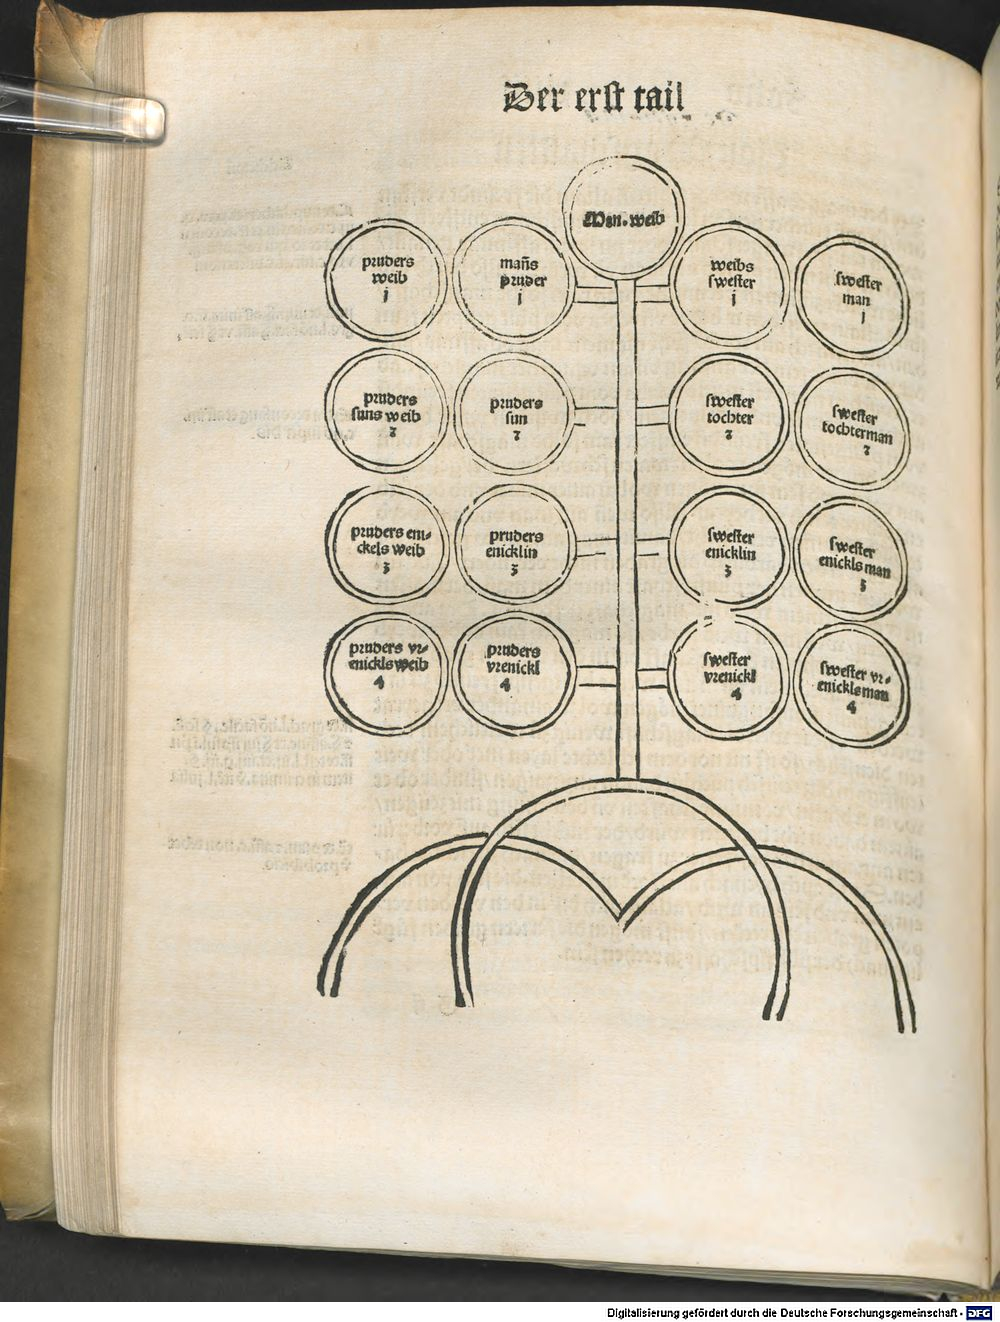 Der erst tail
Man. weib
pruders
weib
j
mañs
pruder
j
weibs
swester
j
swester
man
j
pruders
suns weib
2
pruders
sun
2
swester
tochter
2
swester
tochterman
2
pruders eni-
ckels weib
3
pruders
enicklin
3
swester
enicklin
3
swester
enickls man
3
pruders vr-
enickls weib
4
pruders
vrenickl
4
swester
vrenickl
4
swester vr-
enickls man
4
Digitalisierung gefördert durch die Deutsche Forschungsgemeinschaft - DFG